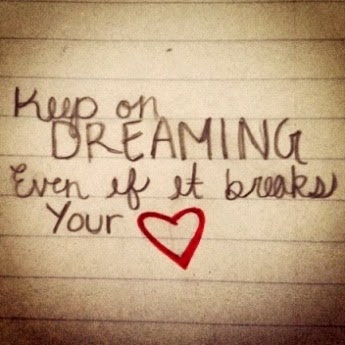 Keep on
DREAMING
Even if it breaks
Your